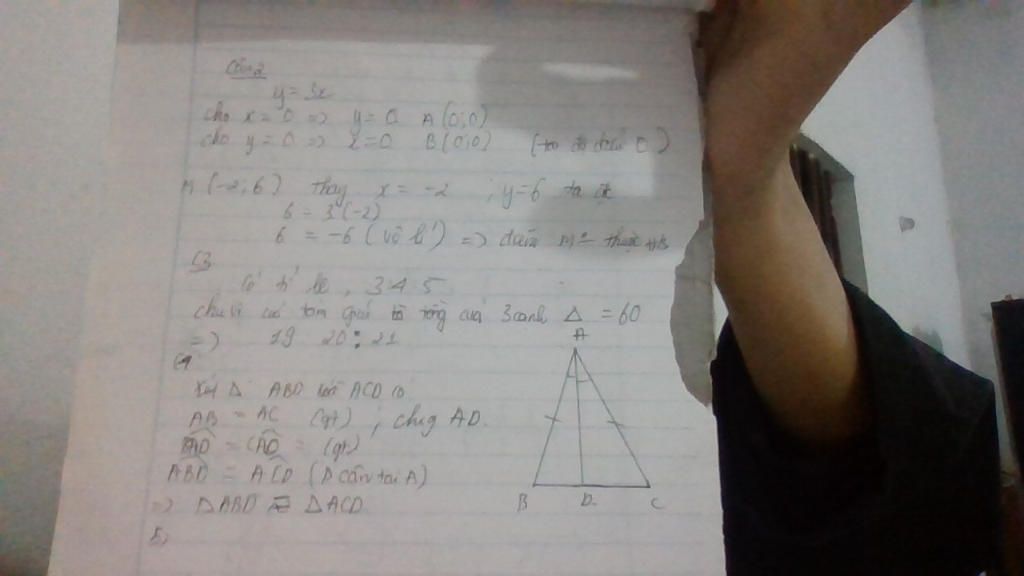 Câu 2
y = 3x
cho x = 0 => y = 0 A (0;0)
cho y = 0 => x = 0 B (0;0) (tọa độ điểm O)
M (-2;6) thay x = -2 ; y=6 ta
6 = 3(-2)
6 = -6 (vô lí) => điểm M thuộc
C3
Có tỉ lệ , 3 4 5
chu vi tam giác tổng của 3 cạnh Δ = 60
=> 19 20 : 21
C4
Xét Δ ABD và ACD có
AB = AC (gt) ; chug AD.
= CAD = (gt)
ABD = ACD (Δ cân tại A)
=> ΔABD = ΔACD
A
B D C
5,